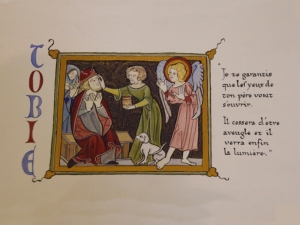 TOBIE
"Je te garantis
que les yeux de
ton père vont
s'ouvrir.
Il cessera d'être
aveugle et il
verra enfin
la lumière."